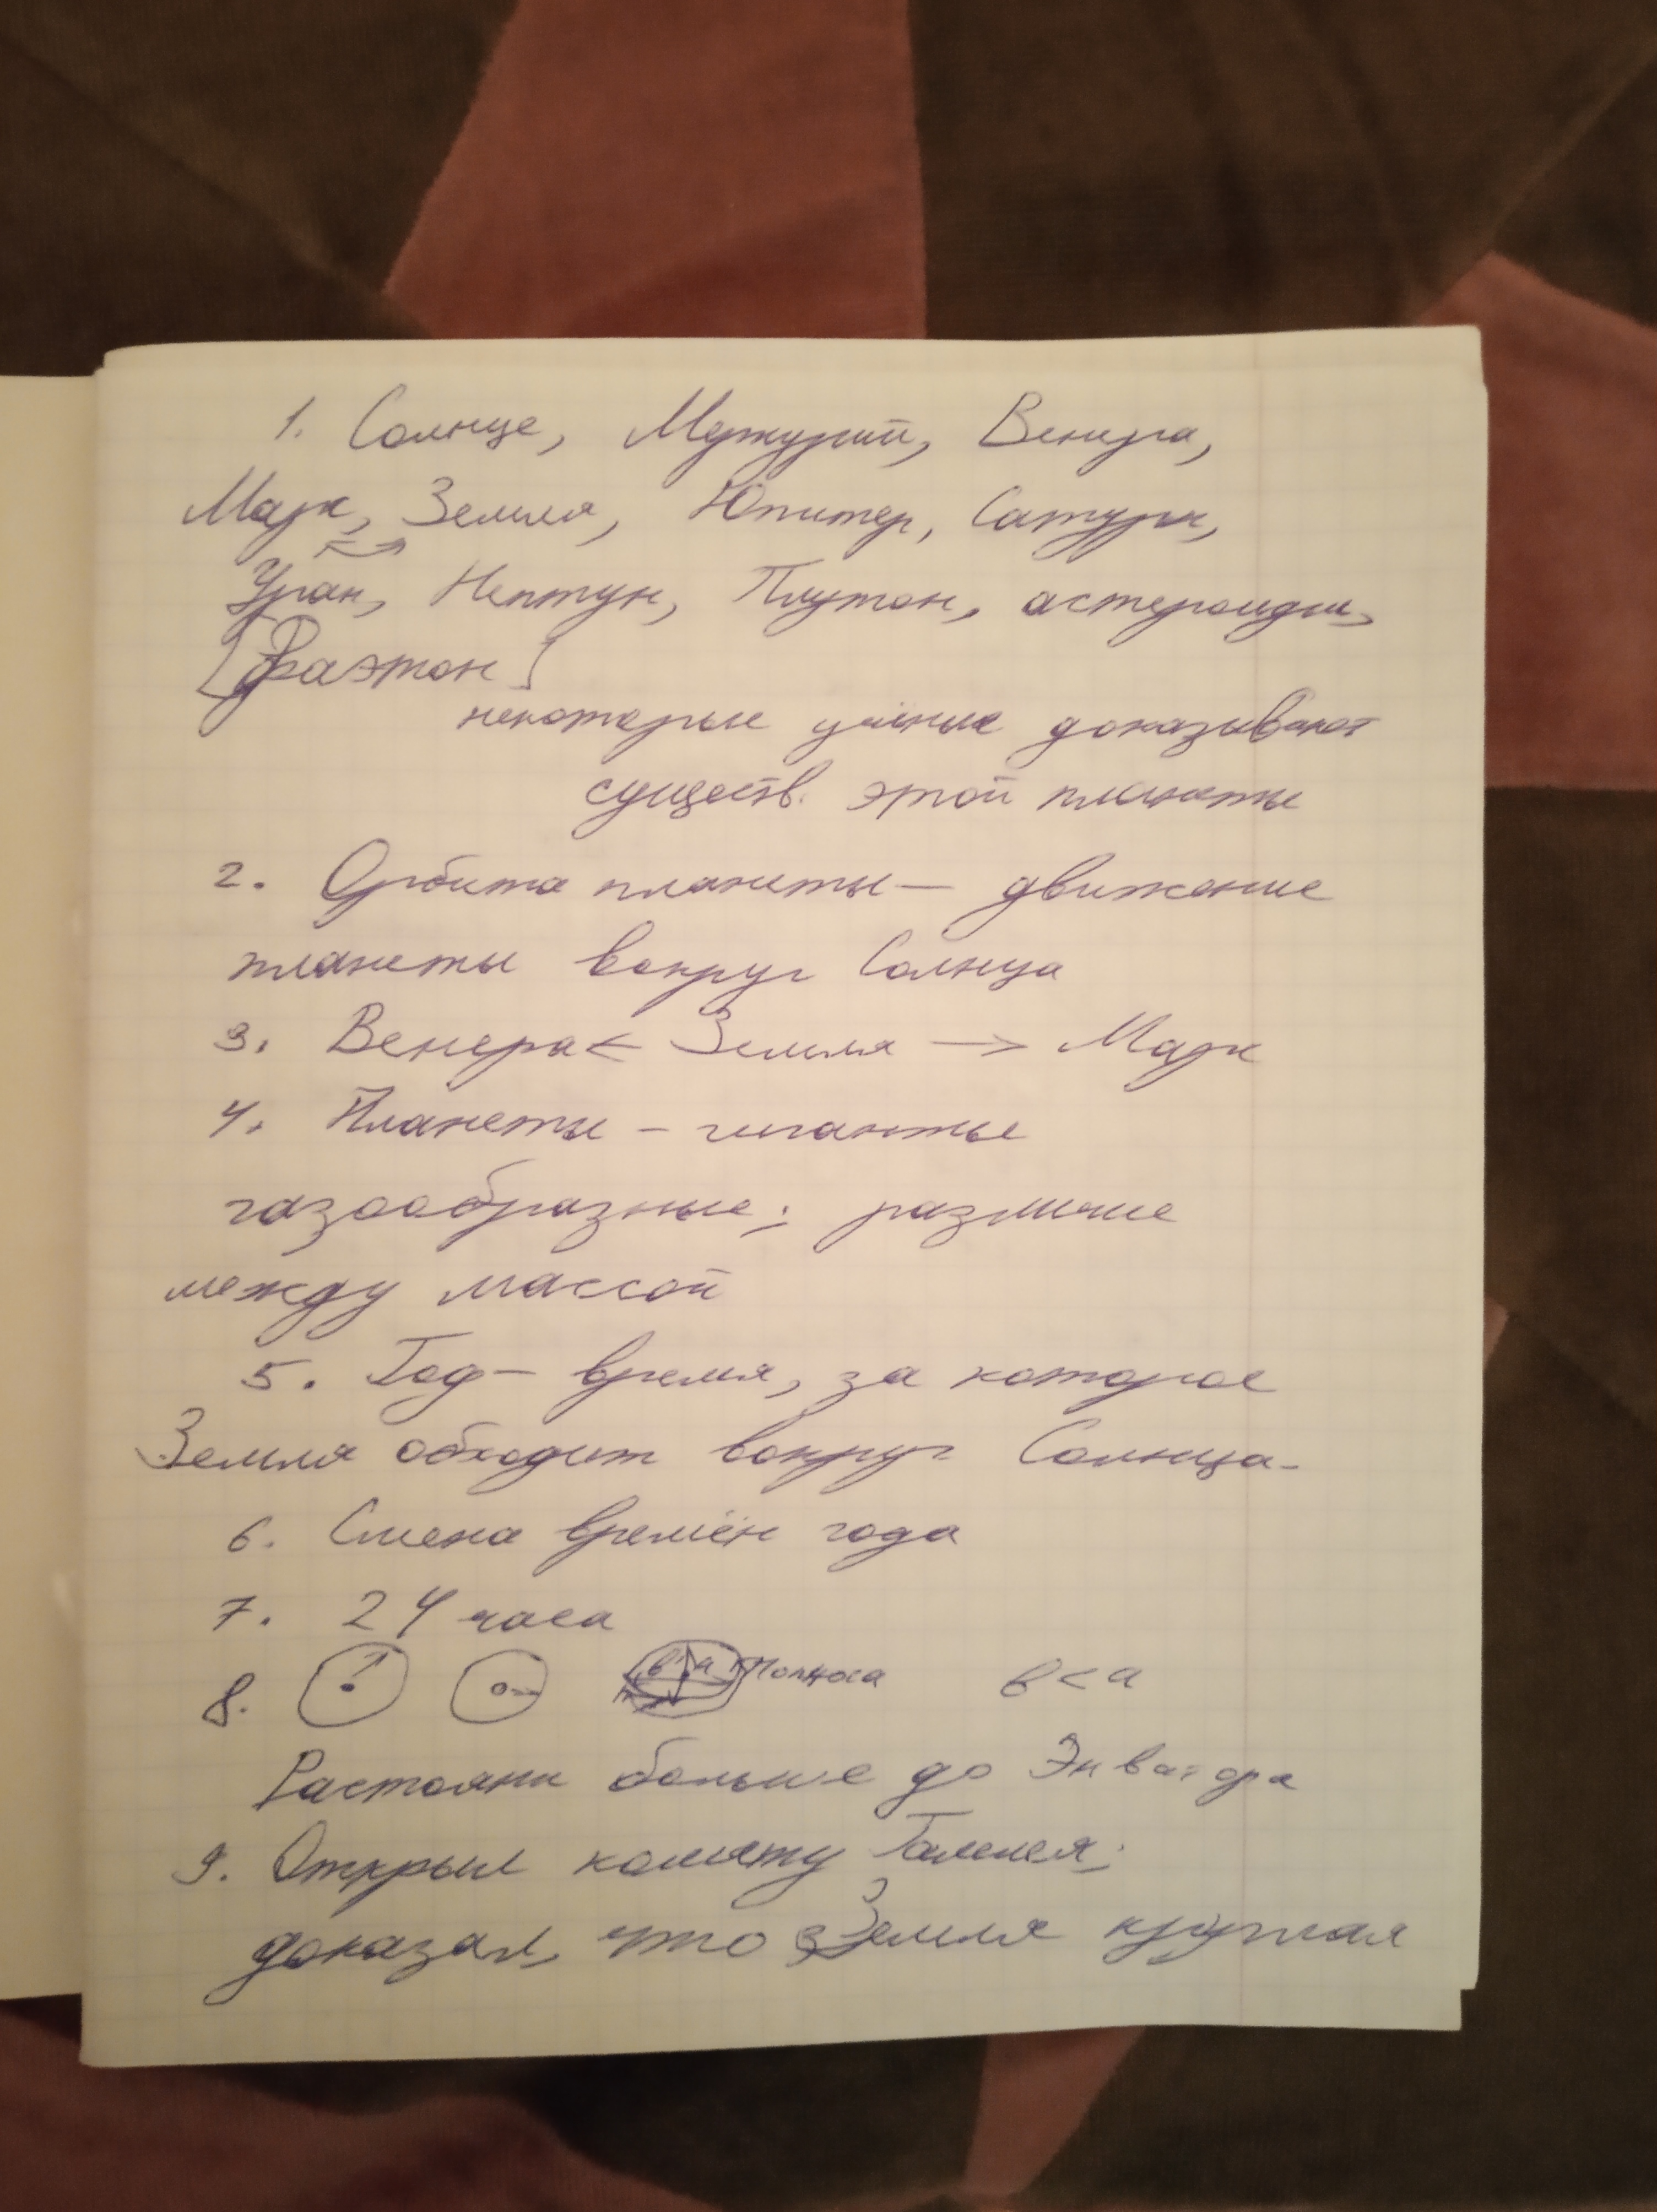 1. Солнце, Меркурий, Венера,
Марс, Земля, Юпитер, Сатурн,
Уран, Нептун, Плутон, астероиды,
[Фаэтон]
некоторые учёные доказывают
существ. этой планеты
2. Орбита планеты — движение
планеты вокруг Солнца
3. Венера ← Земля → Марс
4. Планеты - гиганты
газообразные; различие
между массой
5. Год — время, за которое
Земля обходит вокруг Солнца.
6. Смена времён года
7. 24 часа
8. в а Полюса в < а
Растояни больше до Экватора
9. Открыл комету Галилея;
доказал, что Земля круглая